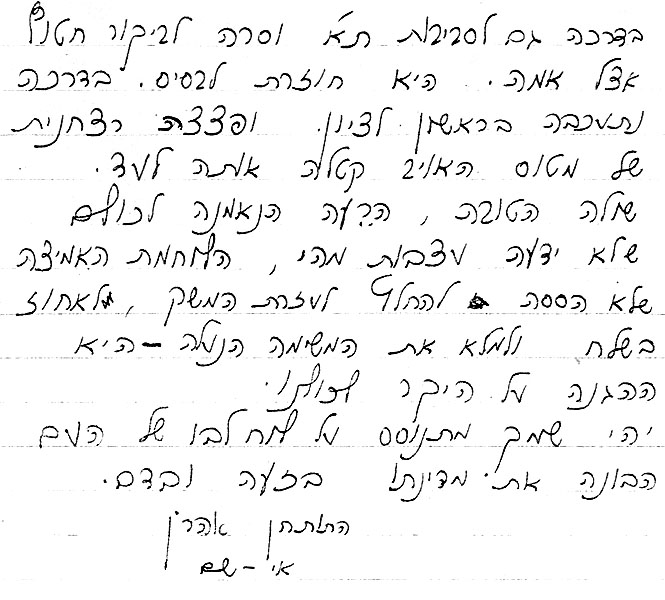 בדרכה גם לסביבות ת״א וסרה לביקור חטוף
אצל אמה. היא חוזרת לבסיס. בדרכה
נתעכבה בראשון לציון. ופצצה רצחנית
של מטוס האויב קטלה אותה לעד.
שולה הטובה, הרעה הנאמנה לכולם
שלא ידעה עצבות מהי, הלוחמת האמיצה
שלא הססה להחלץ לעזרת המשק, ולאחוז
בשלח ולמלא את המשימה הנעלה – היא
ההגנה על היקר לכולנו.
יהי שמך מתנוסס על לוח לבו של העם
הבונה את מדינתו בזעה ובדם.
התותחן אהרון
אי – שם